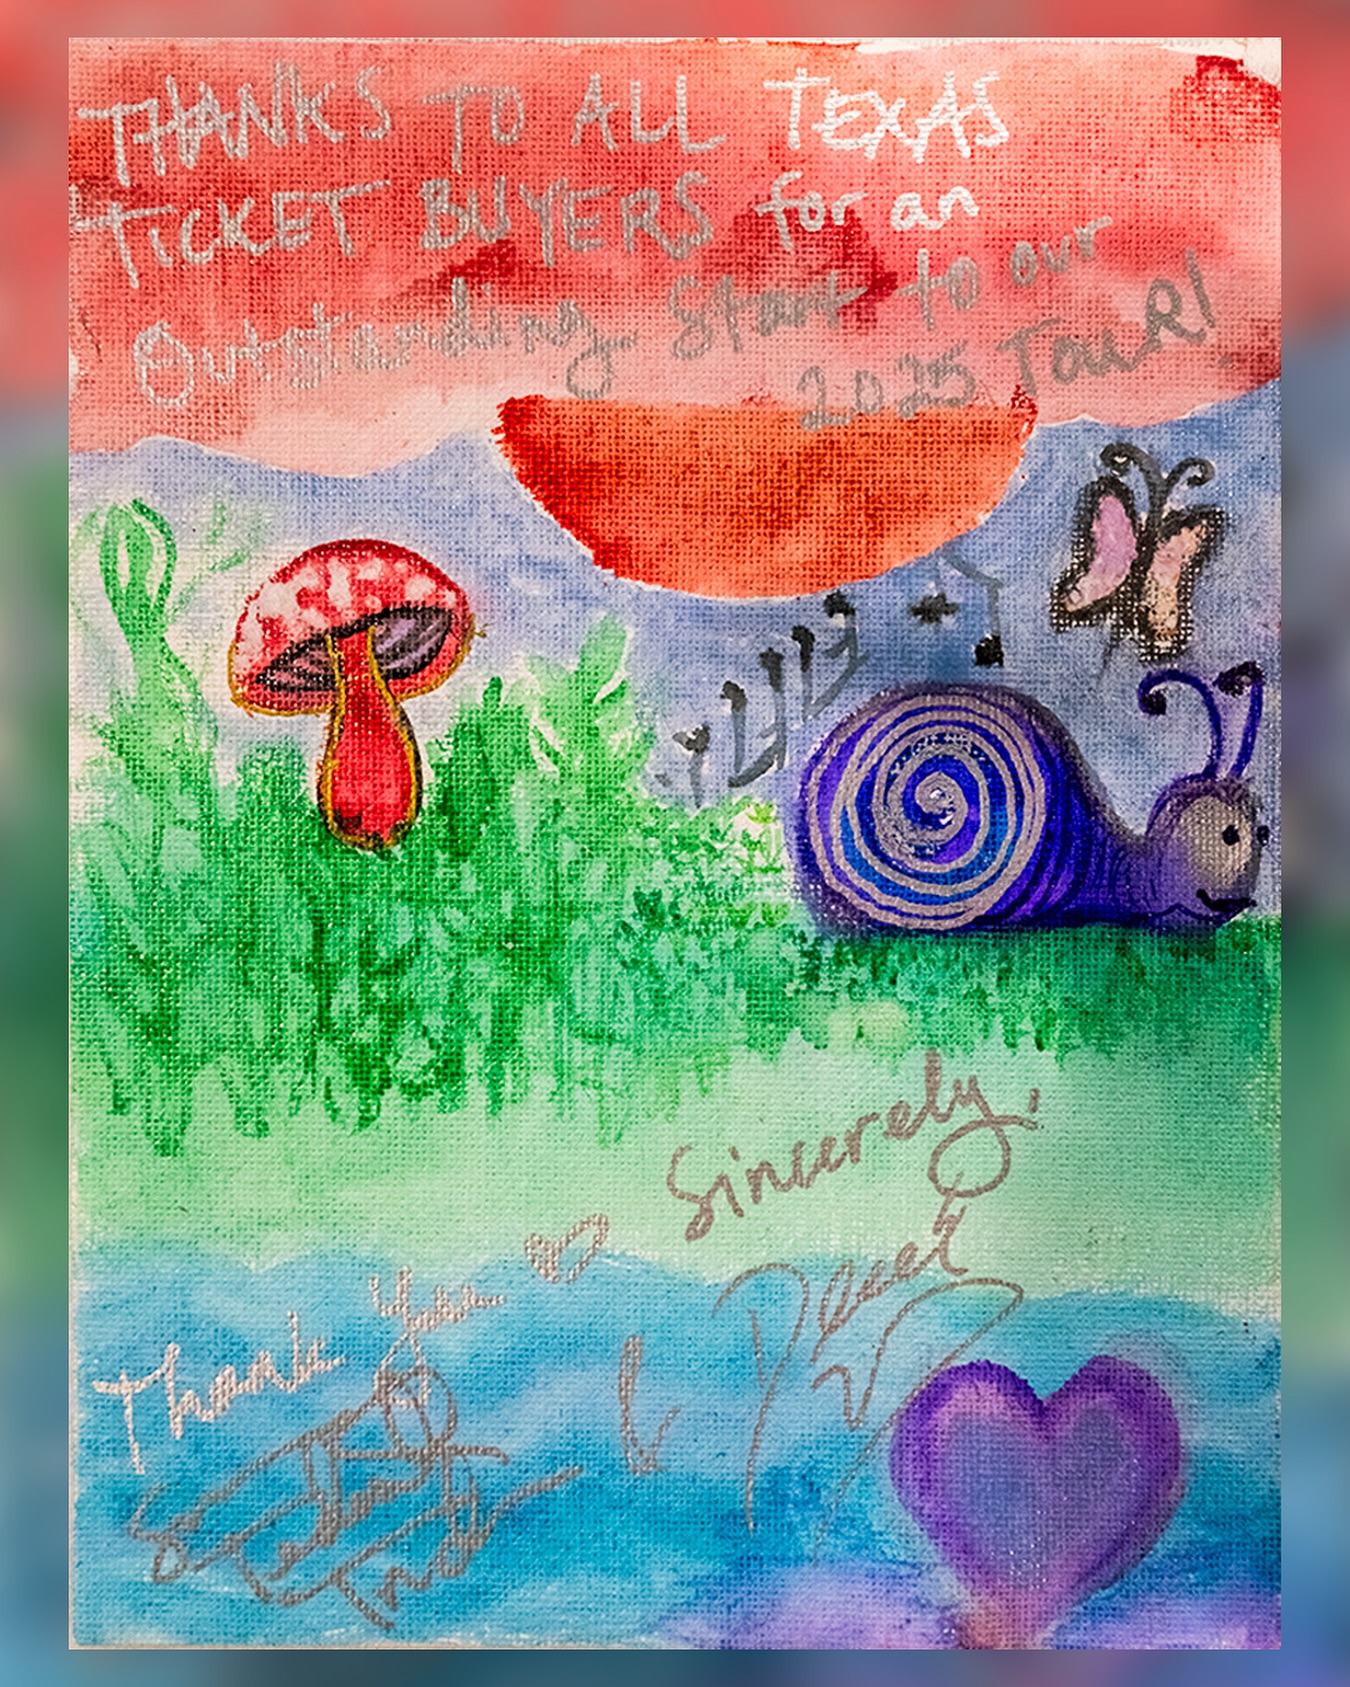 THANKS TO ALL TEXAS
TICKET BUYERS for an
Outstanding Start to our
2025 TouR!
Sincerely,
Thank You